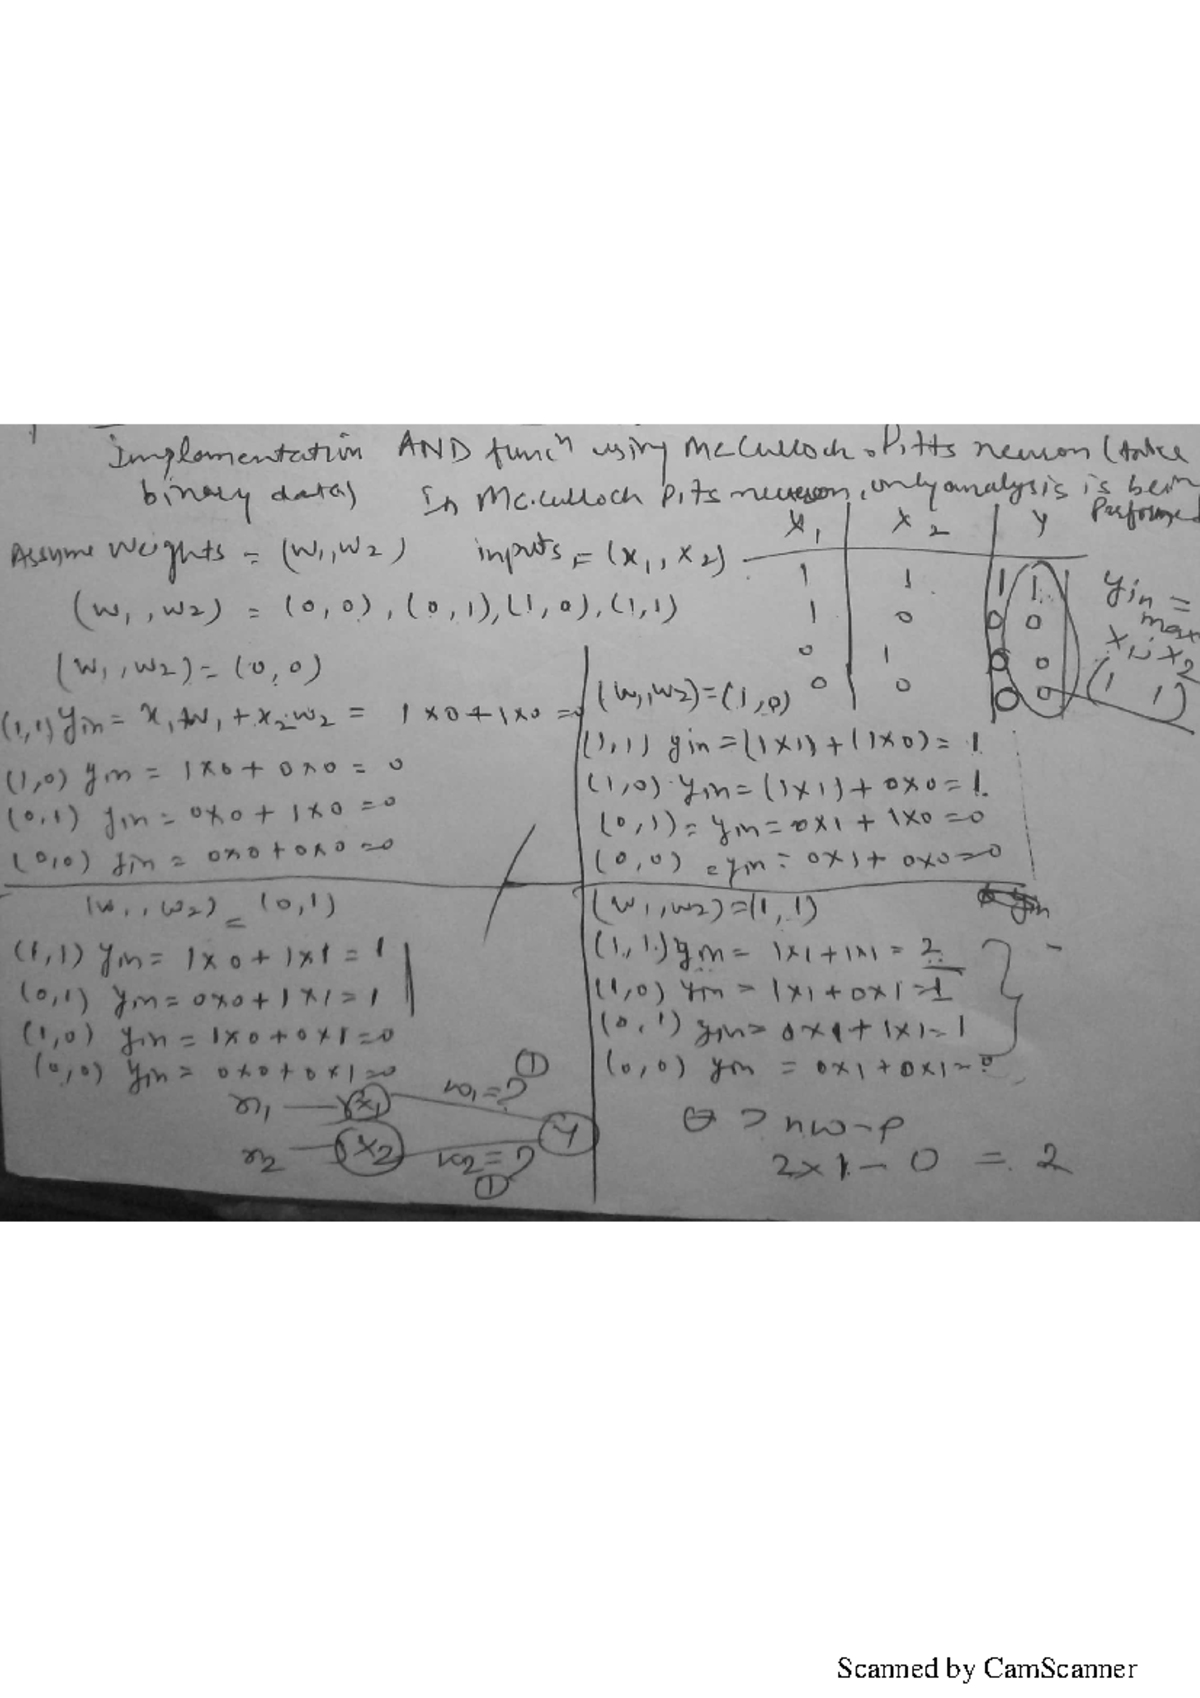 Implementation AND funcⁿ using McCulloch-Pitts neuron (take
binary data) In Mc.culloch Pits neuron, only analysis is being
Performed
Assume Weights = (w₁,w₂) inputs = (x₁, x₂)
x₁ x₂ y
1 1 1 1
1 0 0 0
0 1 0 0
0 0 0 0
yin =
max
x₁, x₂
(1 1)
(w₁, w₂) = (0,0), (0,1), (1,0), (1,1)
(w₁, w₂) = (0,0)
(1,1) yin = x₁w₁ + x₂w₂ = 1x0+1x0=0
(1,0) yin = 1x0+0x0=0
(0,1) yin = 0x0+1x0=0
(0,0) yin = 0x0+0x0=0
(w₁,w₂)=(1,0)
(1,1) yin =(1x1)+(1x0)=1
(1,0) yin=(1x1)+0x0=1.
(0,1)= yin=0x1+1x0=0
(0,0) = yin = 0x1+0x0=0
(w₁, w₂) = (0,1)
(1,1) yin= 1x0+1x1=1
(0,1) yin=0x0+1x1=1
(1,0) yin=1x0+0x1=0
(0,0) yin= 0x0+0x1=0
(w₁,w₂)=(1,1)
yin
(1,1) yin= 1x1+1x1=2
(1,0) yin = 1x1+0x1=1
(0,1) yin= 0x1+1x1=1
(0,0) yin = 0x1+0x1=0
x₁ x₁ w₁=? 1
x₂ x₂ w₂=? 1
y
θ > nw-p
2x1-0 = 2
Scanned by CamScanner